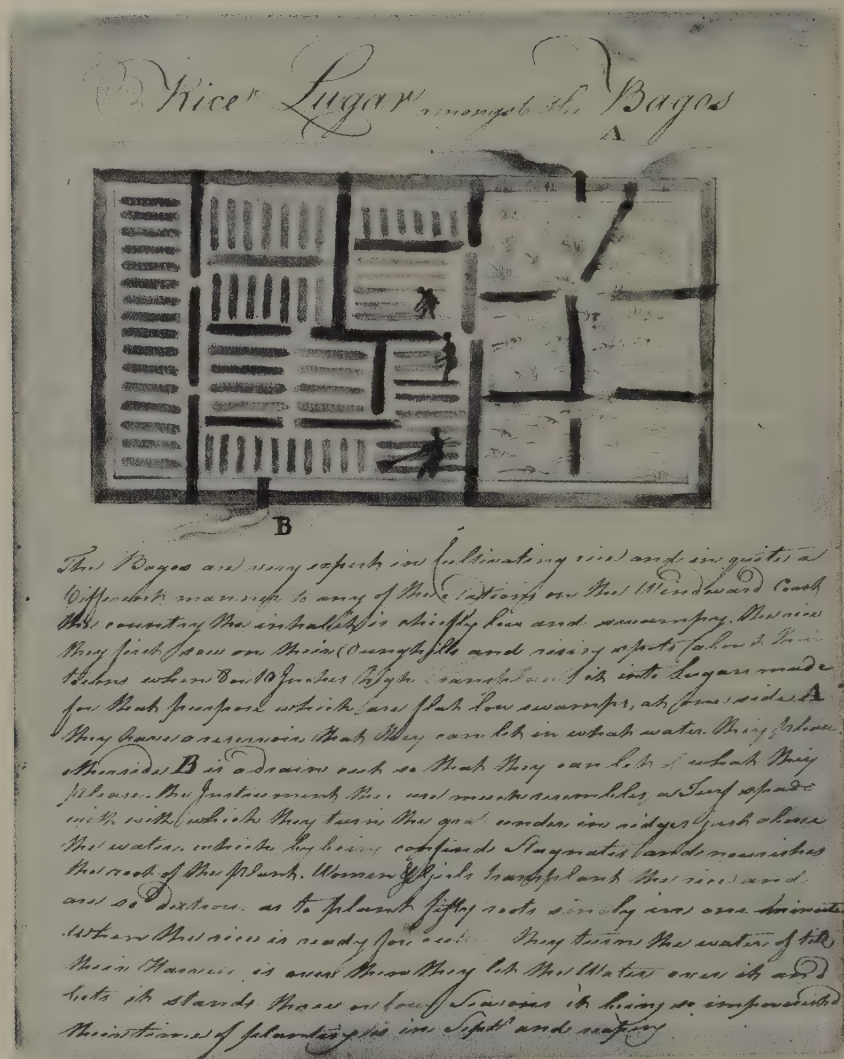 Rice Lugar amongst the Bagos
A
B
The Bagos are very expert in Cultivating rice and in quite a
Different manner to any of the Nations on the Windward Coast
the country the inhabit is chiefly low and swampy. the rice
they first sow on their Dunghills and rising spots about their
towns when 8 or 10 Inches high transplant it into Lugars made
for that purpose which are flat low swamps, at one side A
they have a reservoir that they can let in what water they please
otherside B is a drain out so that they can let of what they
please. the Instrument they use much resembles a Turf spade
with which they turn the gras under in ridges just above
the water which by being confined Stagnates and nourishes
the root of the plant. Women & Girls transplant the rice and
are so dextrous as to plant fifty roots singly in one minute
when the rice is ready for cutting they turn the water of till
their Harvest is over then they let the Water over it and
lets it stands three or four Seasons it being so impoverished
their time of planting is in Septr and reaping